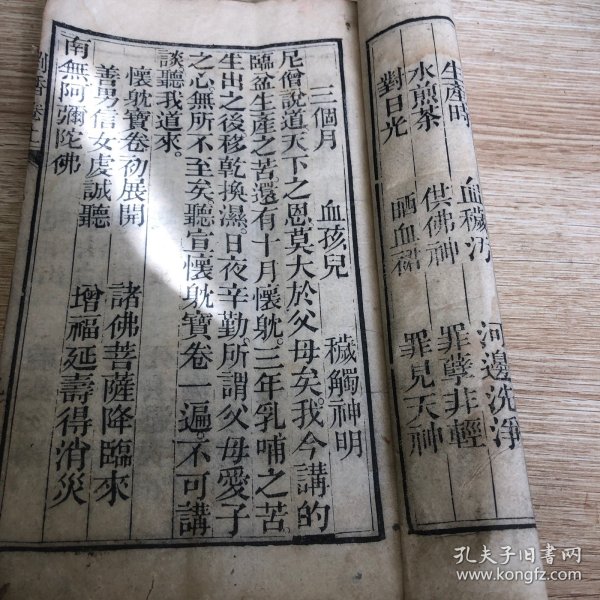 生產時　血穢汙　河邊洗淨
水煎茶　供佛神　罪孽非輕
對日光　晒血裙　罪見天神
三個月　血孩兒　穢觸神明
尼僧說道天下之恩莫大於父母矣。我今講的
臨盆生產之苦還有十月懷躭。三年乳哺之苦。
生出之後移乾換濕。日夜辛勤。所謂父母愛子
之心無所不至矣聽宣懷躭寶卷一遍。不可講
談聽我道來。
懷躭寶卷初展開　諸佛菩薩降臨來
善男信女虔誠聽　增福延壽得消災
南無阿彌陀佛
孔夫子旧书网
www.kongfz.com